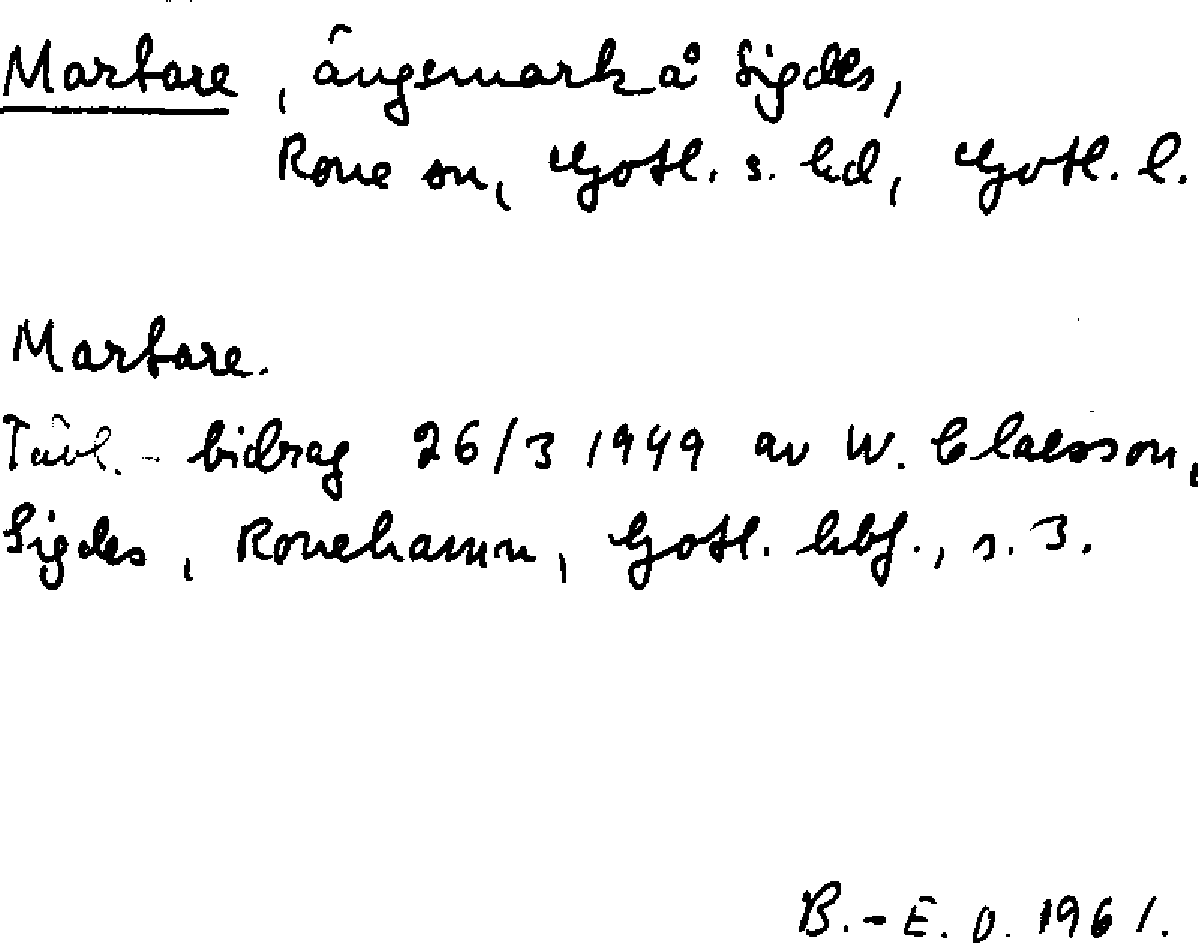 Marbare, ängsmark å Sigdes,
Rone sn, Gotl. s. hd, Gotl. l.
Marbare.
Tävl.-bidrag 26/3 1949 av W. Claesson,
Sigdes, Ronehamn, Gotl. hbf., s. 3.
B.-E. O. 1961.